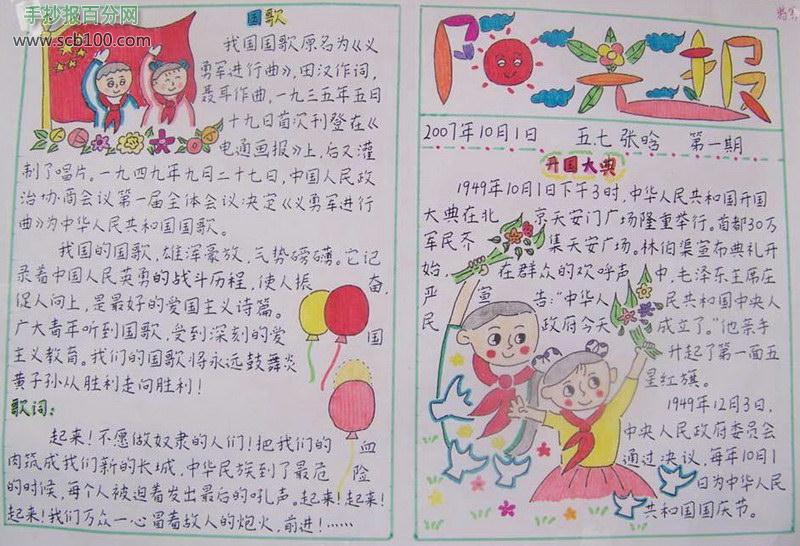 手抄报百分网
www.scb100.com
国歌
我国国歌原名为《义
勇军进行曲》,田汉作词,
聂耳作曲,一九三五年五日
十九日首次刊登在《
电通画报》上,后又灌
制了唱片。一九四九年九月二十七日,中国人民政
治协商会议第一届全体会议决定《义勇军进行
曲》为中华人民共和国国歌。
我国的国歌,雄浑豪放,气势磅礴。它记
录着中国人民英勇的战斗历程,使人振奋,
促人向上,是最好的爱国主义诗篇。
广大青年听到国歌,受到深刻的爱国
主义教育。我们的国歌将永远鼓舞炎
黄子孙从胜利走向胜利!
歌词:
起来!不愿做奴隶的人们!把我们的血
肉筑成我们新的长城,中华民族到了最危险
的时候,每个人被迫着发出最后的吼声。起来!起来!
起来!我们万众一心冒着敌人的炮火,前进!……
阳光报
2007年10月1日 五七 张晗 第一期
开国大典
1949年10月1日下午3时,中华人民共和国开国
大典在北京天安门广场隆重举行。首都30万
军民齐集天安广场。林伯渠宣布典礼开
始,在群众的欢呼声中,毛泽东主席庄
严宣告:“中华人民共和国中央人
民政府今天成立了。”他亲手
升起了第一面五
星红旗。
1949年12月3日,
中央人民政府委员会
通过决议,每年10月1
日为中华人民
共和国国庆节。